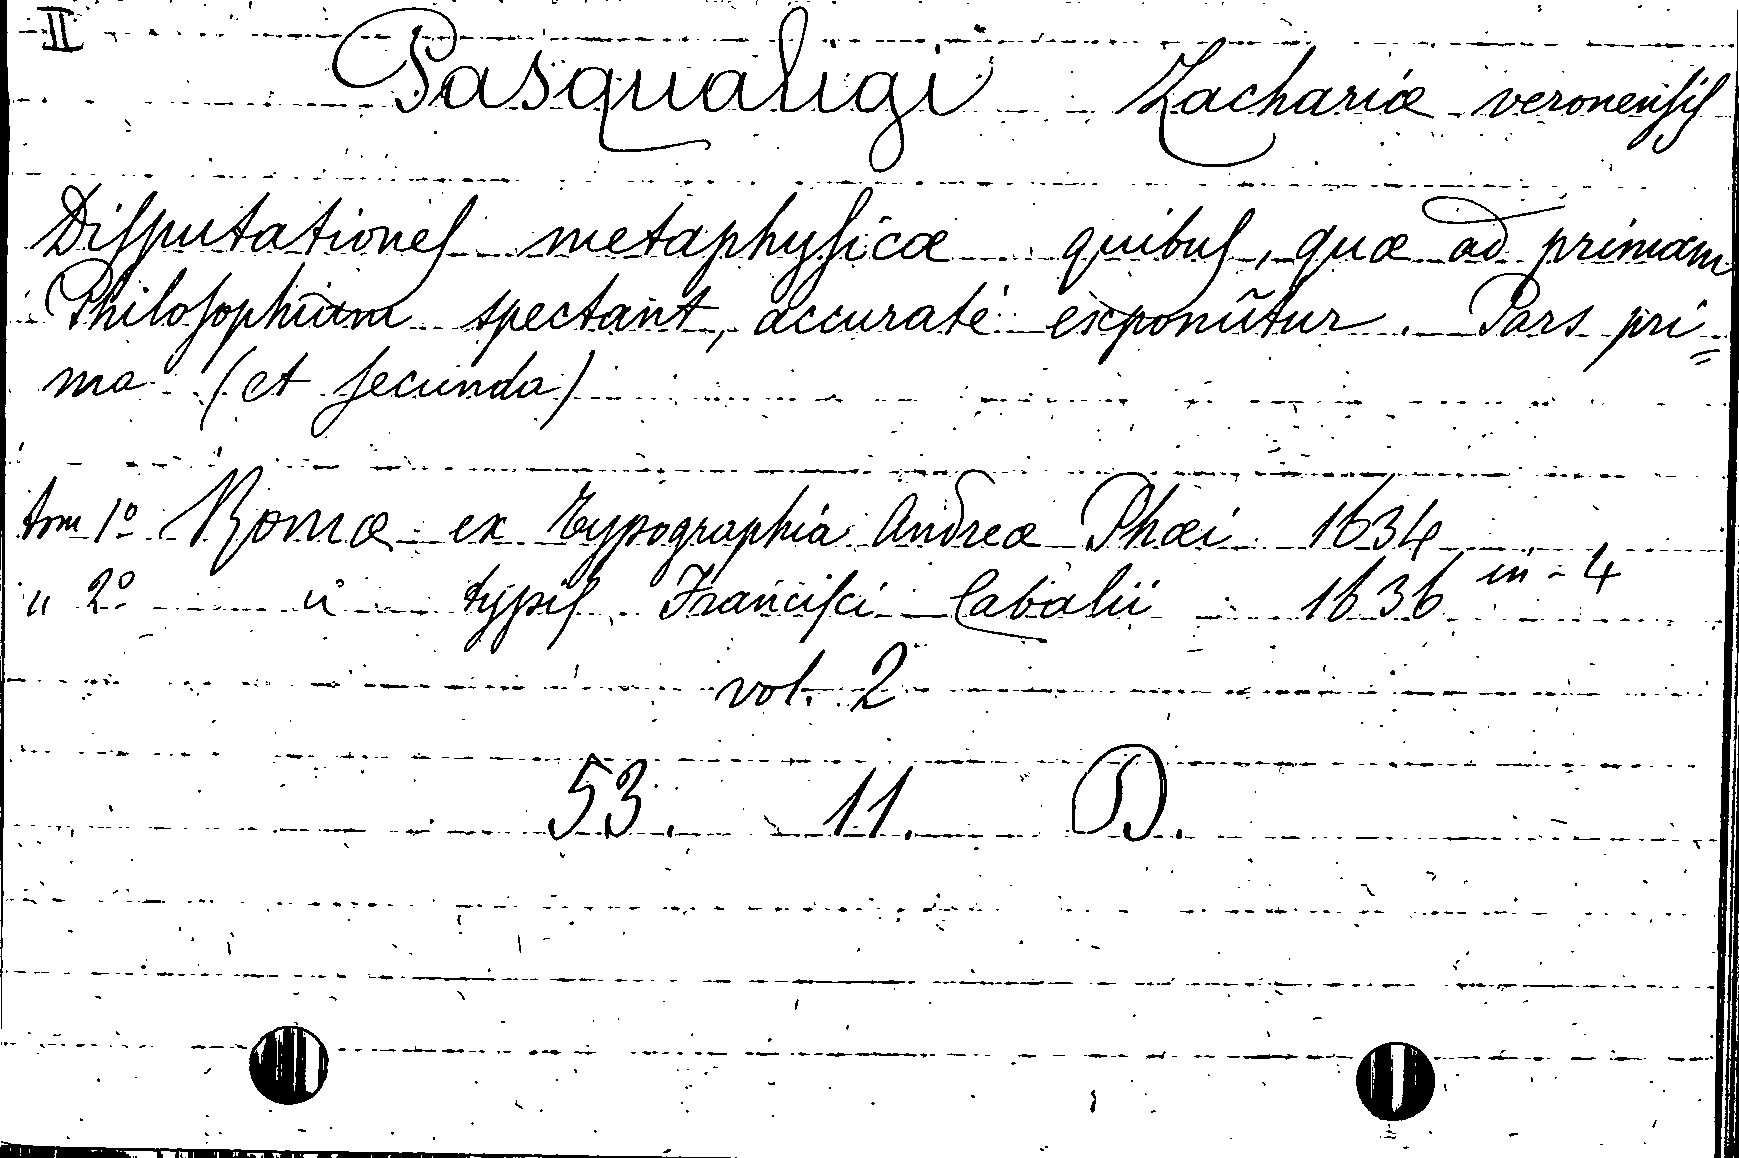 II
Pasqualigi Zachariæ veronensis
Disputationes metaphysicæ quibus, quæ ad primam
Philosophiam spectant, accuratè exponũtur. Pars pri=
ma (et secunda)
tom 1º Romæ ex typographia Andreæ Phæi 1634
" 2º " typis Francisci Cabalii 1636 in-4
vol. 2
53. 11. D.